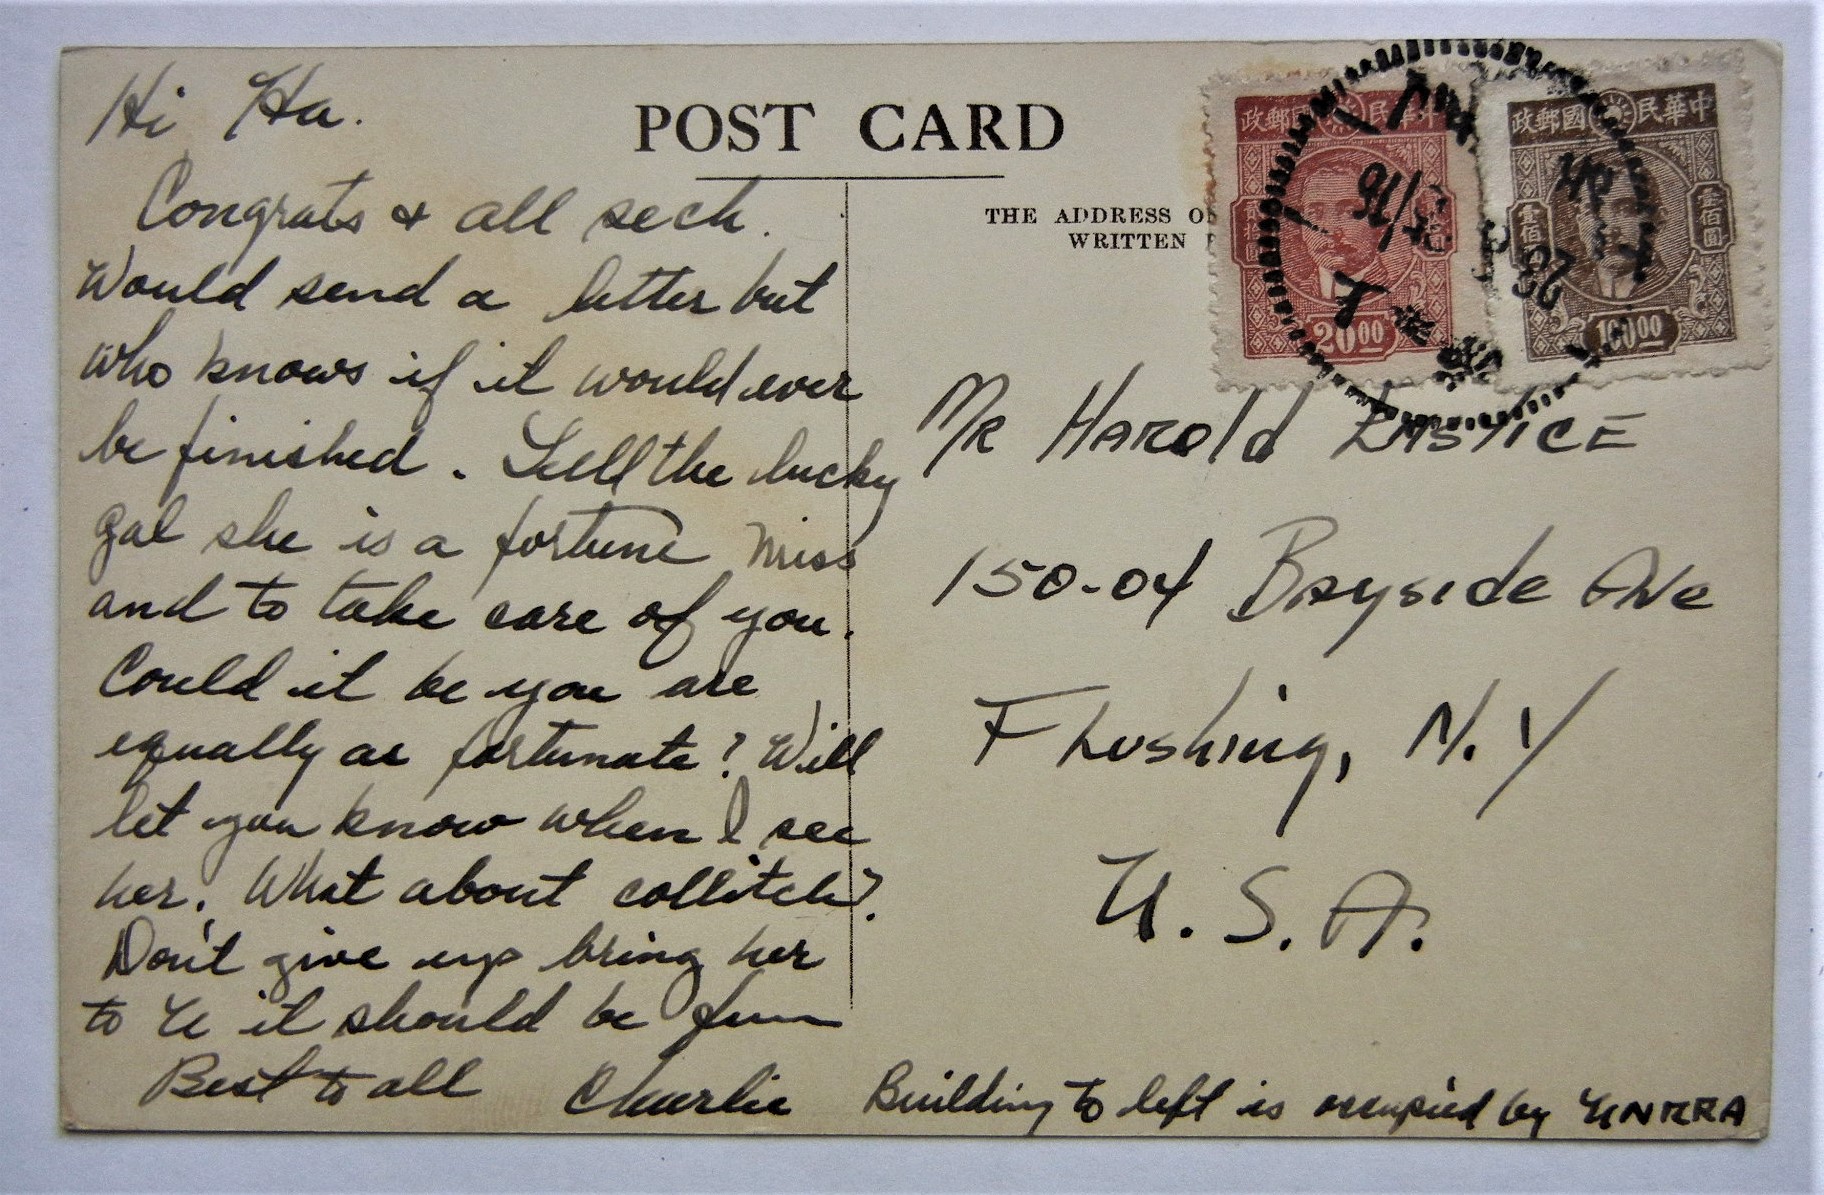 Hi Ha.
Congrats & all sech.
Would send a letter but
who knows if it would ever
be finished. Tell the lucky
gal she is a fortune miss
and to take care of you.
Could it be you are
equally as fortunate? Will
let you know when I see
her. What about collitch?
Don't give up bring her
to U it should be fun
Best to all Charlie
POST CARD
THE ADDRESS O
WRITTEN
中華民國郵政
2000
中華民國郵政
壹佰圓
壹佰圓
10000
Mr Harold
150-04 Bayside Ave
Flushing, N.Y
U.S.A.
Building to left is occupied by UNRRA